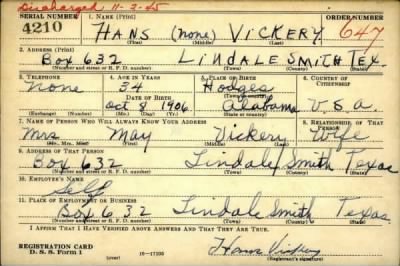 Discharged 11-2-45
SERIAL NUMBER 1. NAME (Print) ORDER NUMBER
4210 HANS (none) VICKERY 647
(First) (Middle) (Last)
2. ADDRESS (Print)
Box 632 LINDALE SMITH TEX.
(Number and street or R. F. D. number) (Town) (County) (State)
3. TELEPHONE 4. AGE IN YEARS 5. PLACE OF BIRTH 6. COUNTRY OF CITIZENSHIP
None 34 Hodges
DATE OF BIRTH (Town or county)
Oct 8 1906 Alabama U.S.A.
(Exchange) (Number) (Mo.) (Day) (Yr.) (State or country)
7. NAME OF PERSON WHO WILL ALWAYS KNOW YOUR ADDRESS 8. RELATIONSHIP OF THAT PERSON
Mrs May Vickery Wife
(Mr., Mrs., Miss) (First) (Middle) (Last)
9. ADDRESS OF THAT PERSON
Box 632 Lindale Smith Texas
(Number and street or R. F. D. number) (Town) (County) (State)
10. EMPLOYER'S NAME
Self
11. PLACE OF EMPLOYMENT OR BUSINESS
Box 632 Lindale Smith Texas
(Number and street or R. F. D. number) (Town) (County) (State)
I AFFIRM THAT I HAVE VERIFIED ABOVE ANSWERS AND THAT THEY ARE TRUE.
REGISTRATION CARD
D. S. S. Form 1 16-17105 Hans Vickery
(Registrant's signature)